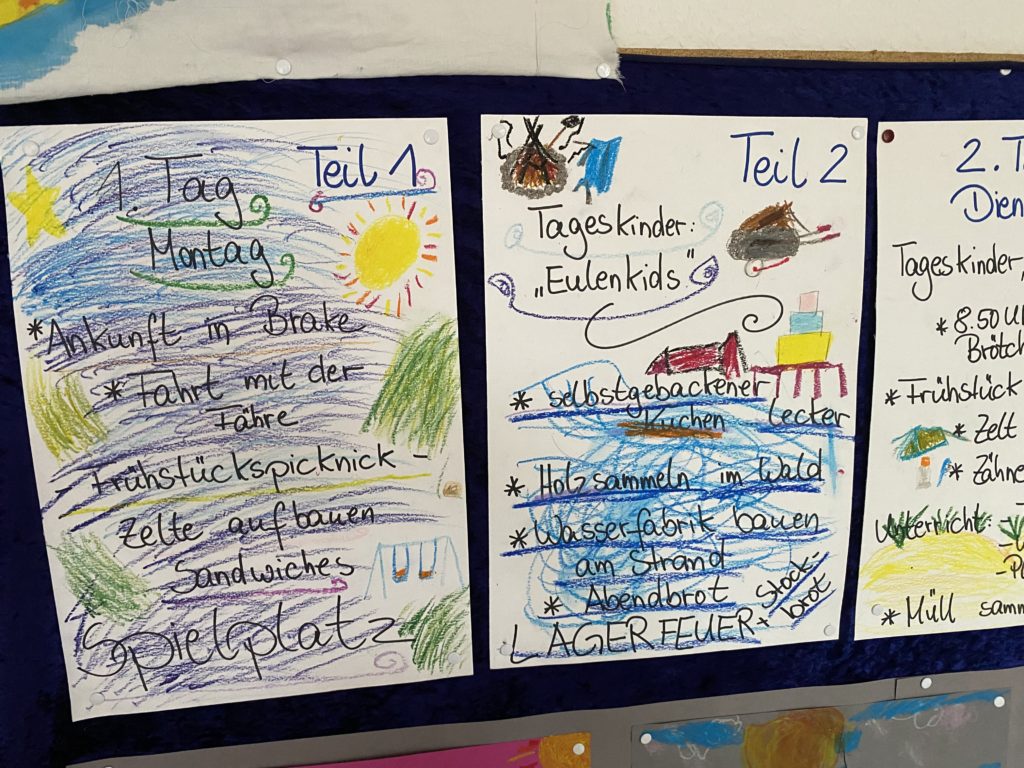 1. Tag
Teil 1
Montag
* Ankunft in Brake
* Fahrt mit der
Fähre
- Frühstückspicknick -
Zelte aufbauen
Sandwiches
Spielplatz
Teil 2
Tageskinder:
„Eulenkids"
* selbstgebackener
Kuchen lecker
* Holz sammeln im Wald
* Wasserfabrik bauen
am Strand
* Abendbrot
LAGERFEUER + Stock-
brot
2. T
Dien
Tageskinder,
* 8.50 U
Brötch
* Frühstück
* Zelt
* Zähne
Unterricht: -
* Müll samm